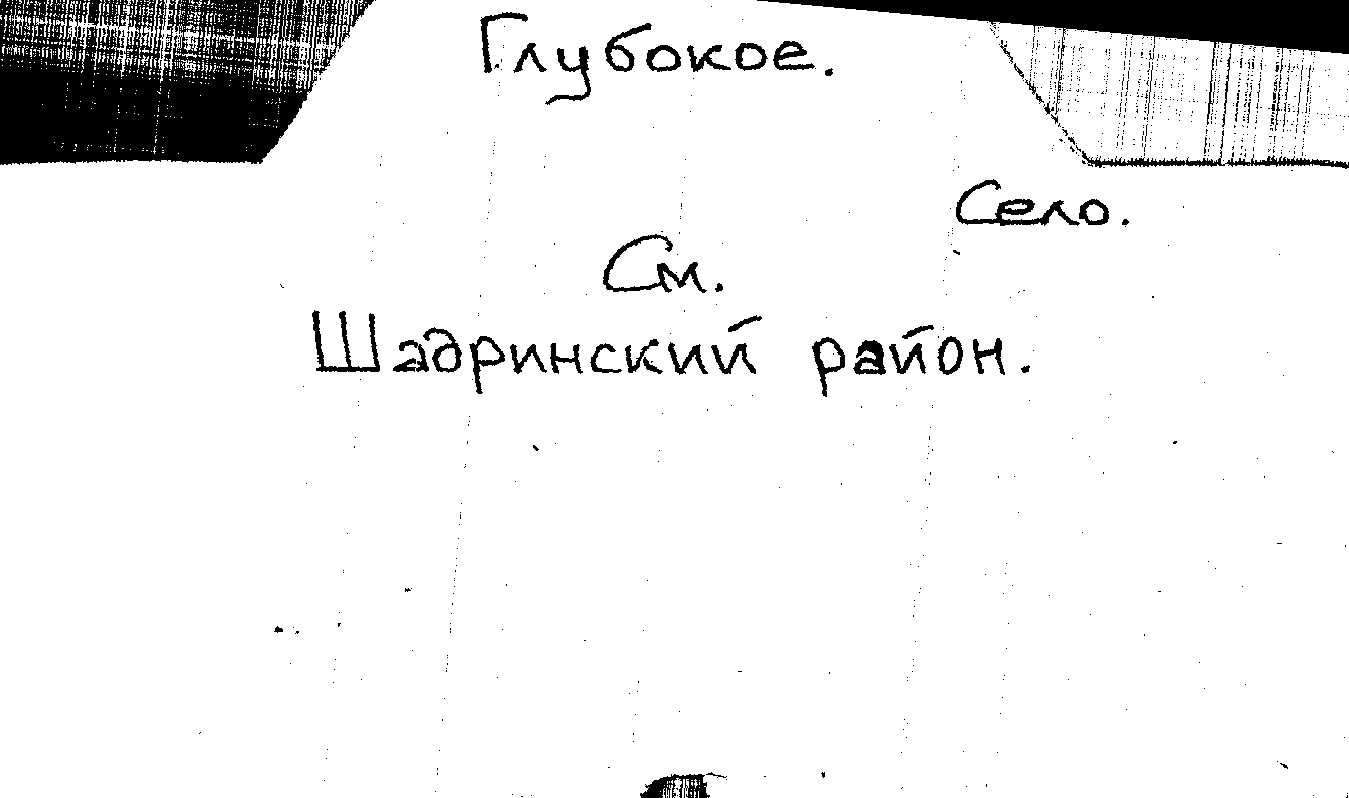 Глубокое.
Село.
См.
Шадринский район.